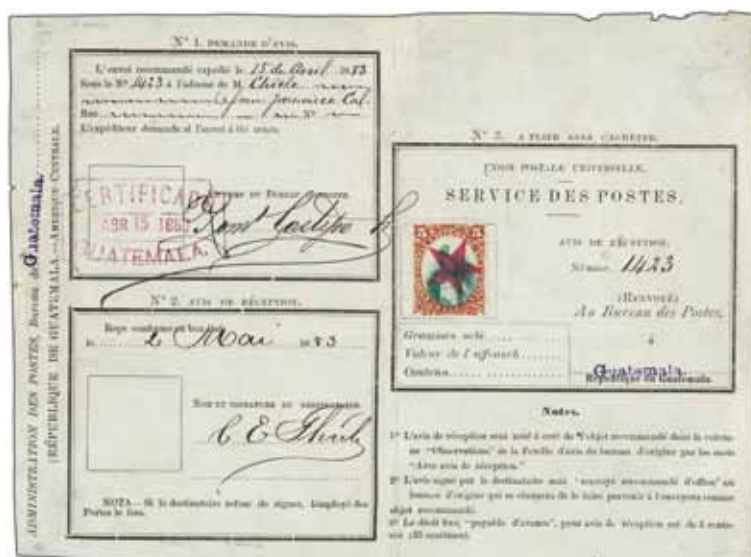 ADMINISTRATION DES POSTES, Bureau de Guatemala.
(RÉPUBLIQUE DE GUATEMALA.—AMÉRIQUE CENTRALE.
Nº 1. DEMANDE D'AVIS.
L'envoi recommandé expédié le 15 de Avril 1883
Sous le Nº 1423 à l'adresse de M.
San Francisco Cal.
Rue Nº
L'expéditeur demande si l'envoi à été
CERTIFICADO
ABR 15
GUATEMALA.
Nº 2. AVIS DE RÉCEPTION.
le 2 Mai 1883
NOM ET SIGNATURE DU
C E
NOTA.—Si le destinataire refuse de signer, l'employé des
Postes le fera.
Nº 3. A PLIER SANS CACHETER.
UNION POSTALE UNIVERSELLE.
SERVICE DES POSTES.
AVIS DE RÉCEPTION.
Numéro 1423
(RENVOI)
Au Bureau des Postes,
à
Guatemala.
République de Guatemala
Valeur de
Contenu
Notes.
1º L'avis de réception sera noté à coté de l'objet recommandé dans la colonne
"Observations" de la Feuille d'avis du bureau d'origine par les mots
"Avec avis de réception."
2º L'avis signé par le destinataire sera "renvoyé recommandé d'office" au
bureau d'origine qui se chargera de le faire parvenir à l'envoyeur comme
objet recommandé.
3º Le droit fixe, "payable d'avance", pour avis de réception est de 5 centavos
(25 centimes).